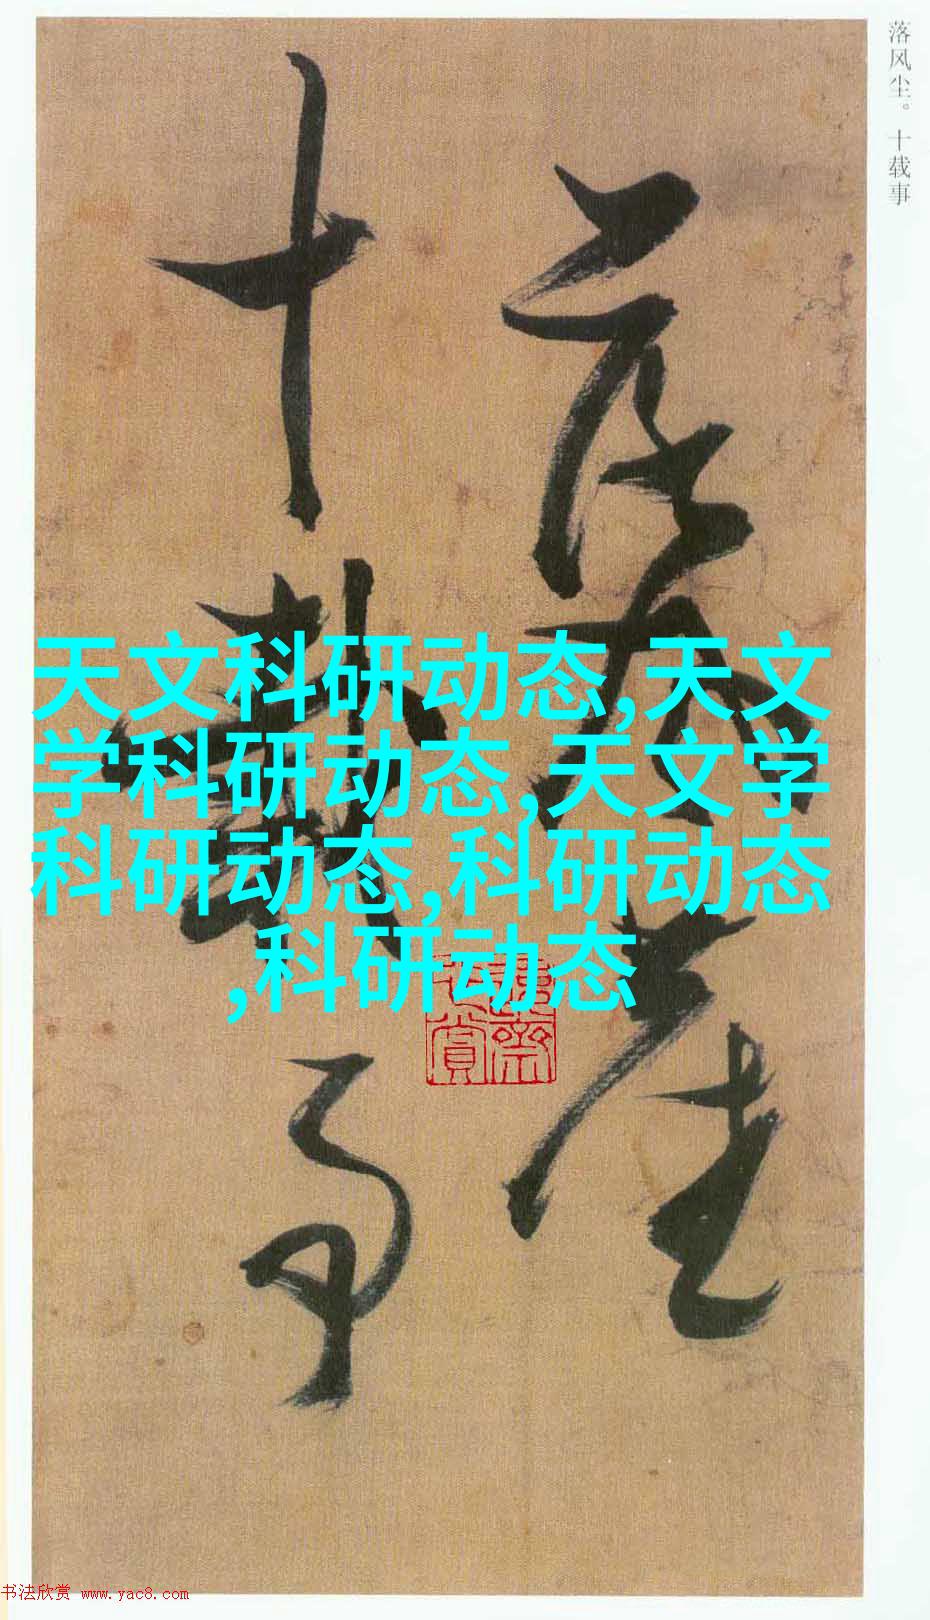 落风尘。十载事
落风尘
十载事
天文科研动态,天文
学科研动态,天文学
科研动态,科研动态
,科研动态
书法欣赏 www.yac8.com